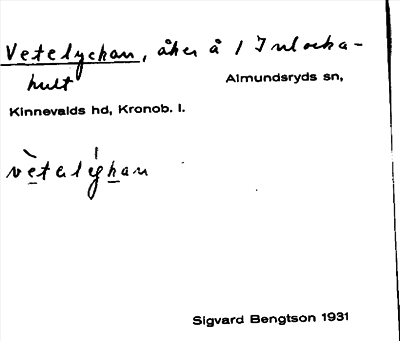 Vetelyckan, åker å 1 Inlocka-
hult Almundsryds sn,
Kinnevalds hd, Kronob. l.
vètelýhan
Sigvard Bengtson 1931